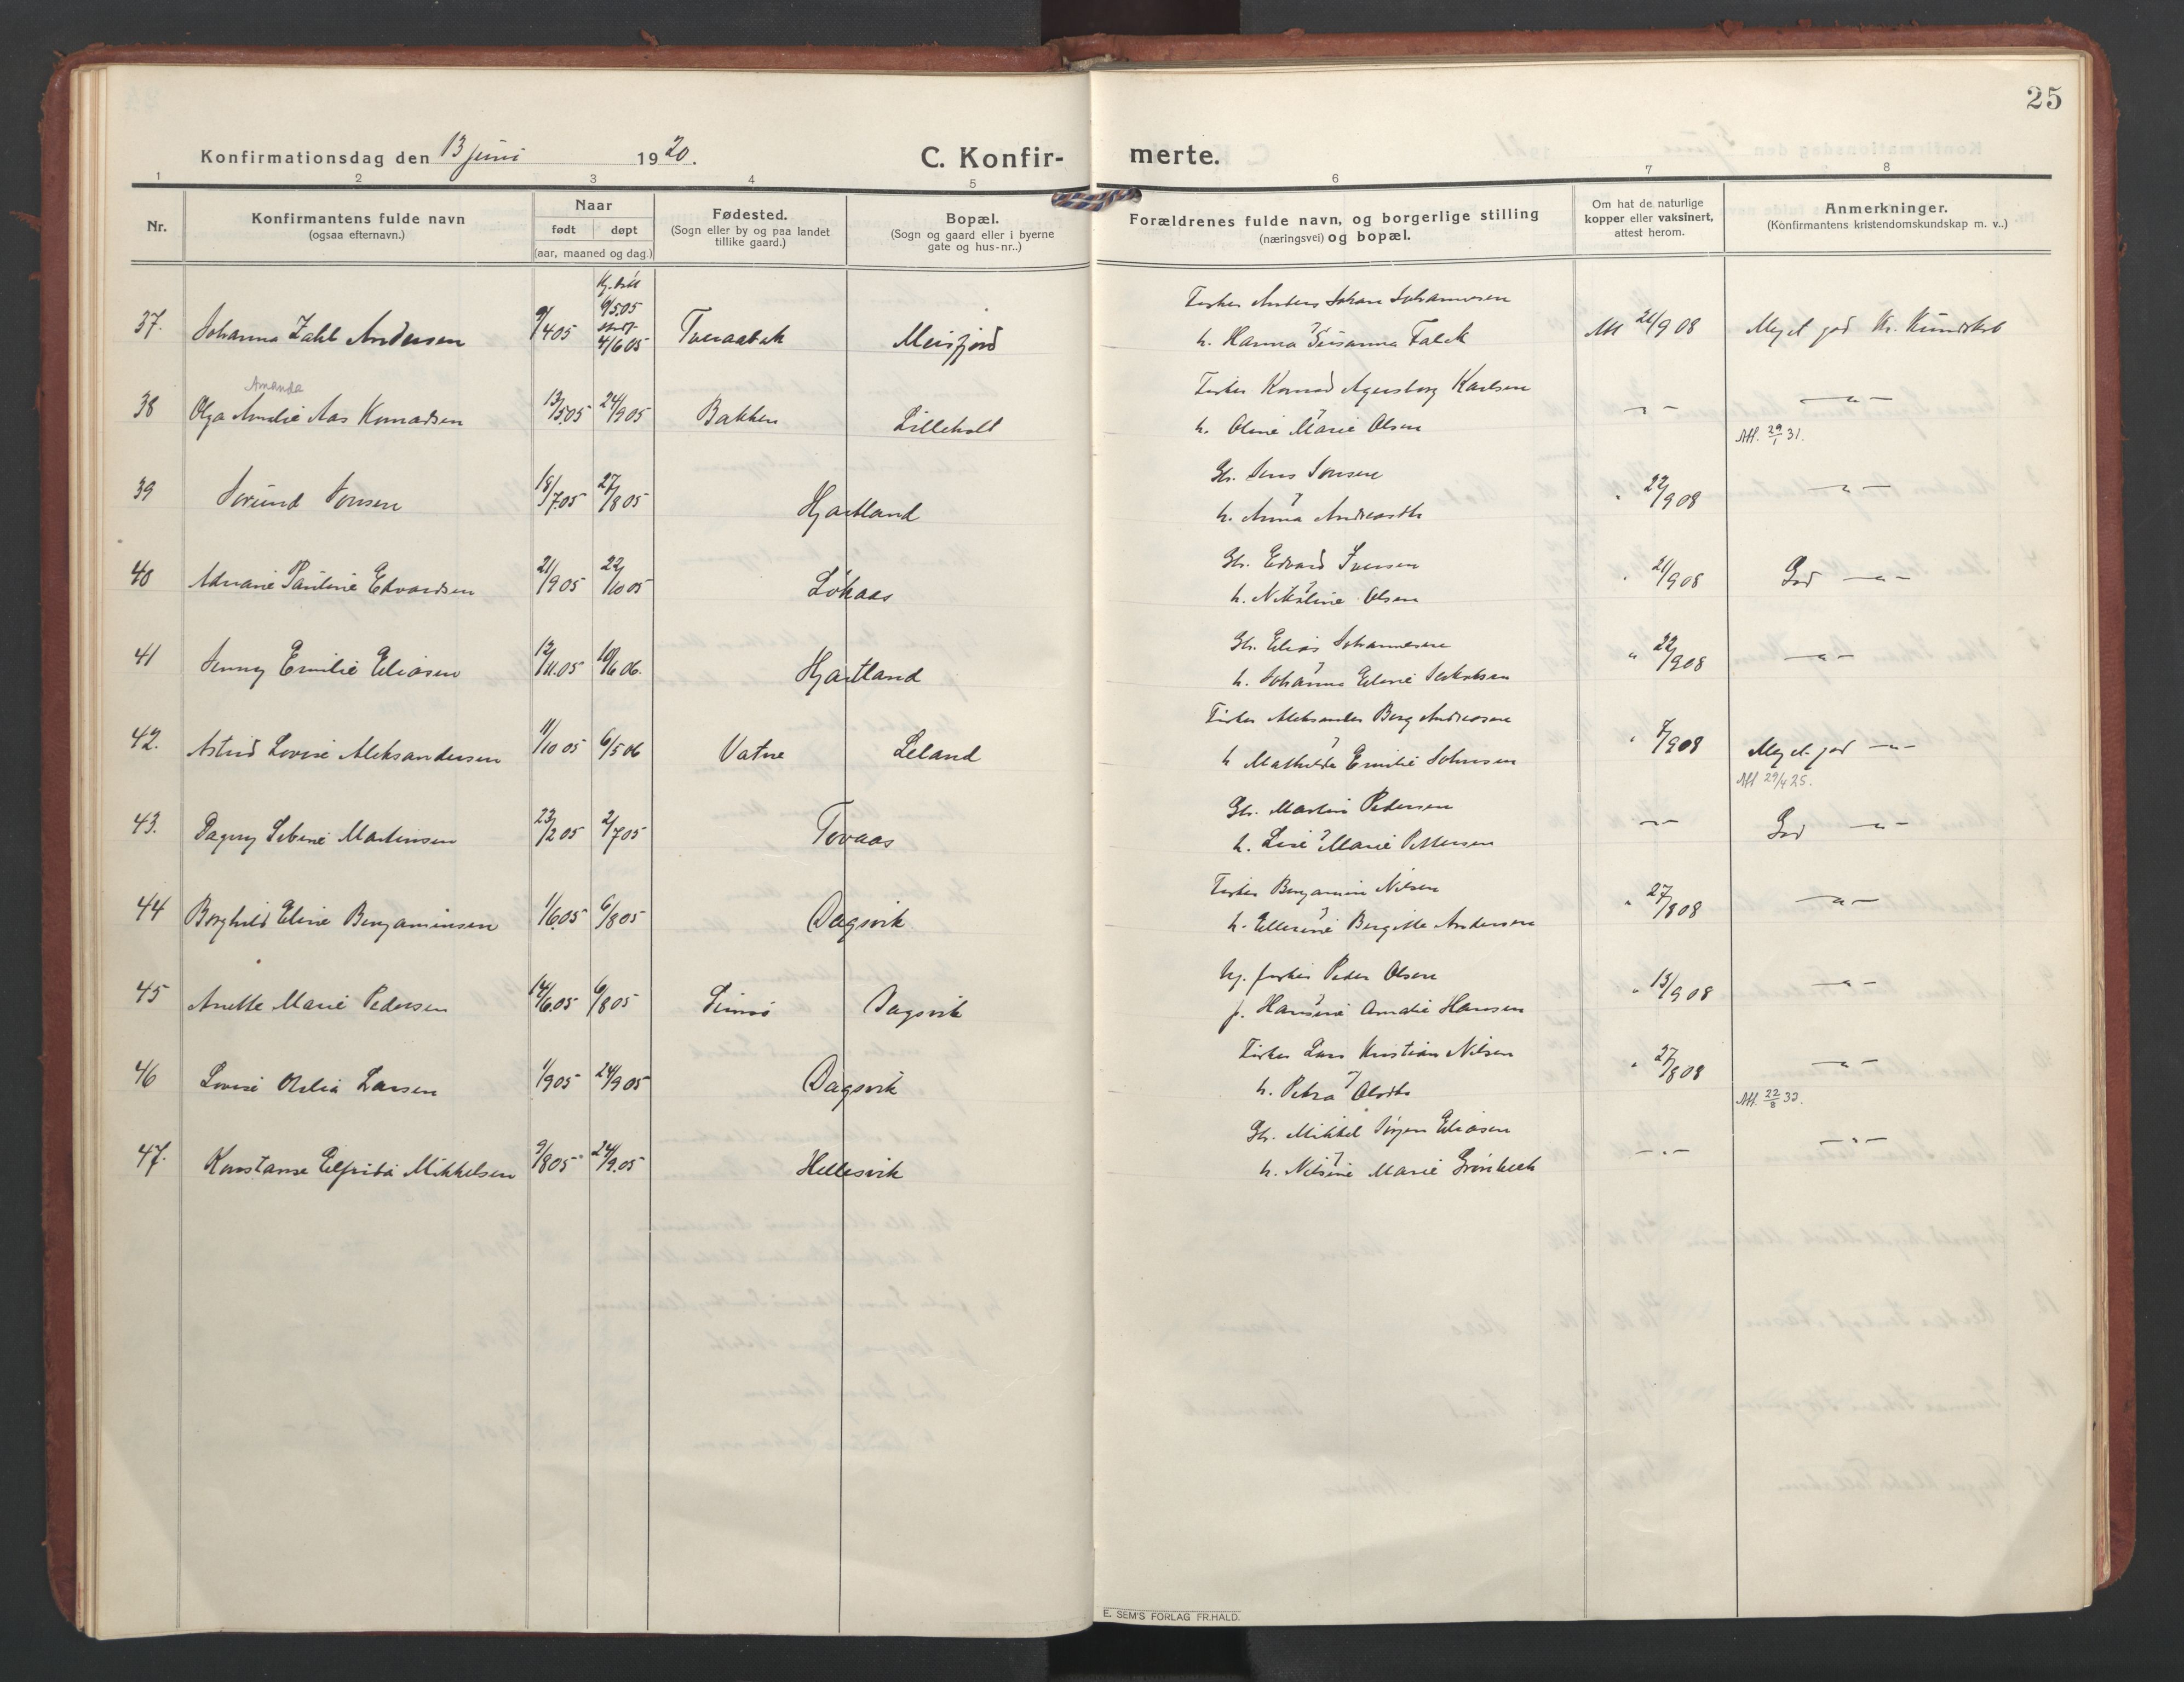 25
Konfirmationsdag den 13 juni 1920.
C. Konfir-
merte.
1 2 3 4 5 6 7 8
Nr.
Konfirmantens fulde navn
(ogsaa efternavn.)
Naar
født døpt
(aar, maaned og dag.)
Fødested.
(Sogn eller by og paa landet
tillike gaard.)
Bopæl.
(Sogn og gaard eller i byerne
gate og hus-nr..)
Forældrenes fulde navn, og borgerlige stilling
(næringsvei) og bopæl.
Om hat de naturlige
kopper eller vaksinert,
attest herom.
Anmerkninger.
(Konfirmantens kristendomskundskap m. v..)
Hj. døbt
6/5 05
stadf.
4/6 05
37. Johanna Zahl Andersen 9/4 05 Tveraabak Meisfjord
Fisker Anders Johan Johannesen
h. Hanna Susanna Falch
Att 21/9 08 Meget god Kr. Kundskab
Amanda
38 Olga Amalie Aas Konradsen 13/5 05 24/9 05 Bakken Lilleholt
Fisker Konrad Agersborg Karlsen
h. Oline Marie Olsen
— " — — " —
Att. 29/1 31.
39 Jorund Jonsen 18/7 05 27/8 05 Hjartland
Gbr. Jens Jonsen
h. Anna Andreasdtr
" 22/9 08 — " —
40 Adriane Pauline Edvardsen 21/9 05 22/10 05 Løkaas
Gbr. Edvard Iversen
h. Nikoline Olsen
" 21/9 08 God — " —
41 Jenny Emilie Eliasen 12/11 05 10/6 06. Hjartland
Gbr. Elias Johannesen
h. Johanna Eline Jakobsen
" 22/9 08 — " —
42. Astrid Lovise Aleksandersen 11/10 05 6/5 06 Vatne Leland
Fisker Aleksander Berg Andreasen
h Mathilde Emilie Johnsen
" 7/9 08 Meget god — " —
Att 29/4 25.
43. Dagny Sebine Martinsen 23/2 05 2/7 05 Tovaas
Gbr. Martin Pedersen
h. Lise Marie Pettersen
— " — God — " —
44 Borghild Eline Benjaminsen 1/6 05 6/8 05 Dagsvik
Fisker Benjamin Nilsen
h. Ellerine Bergitte Andersen
" 27/8 08 — " —
45 Anette Marie Pedersen 14/6 05 6/8 05 Dagsvik
Ug. fisker Peder Olsen
p. Hansine Amalie Hansen
" 13/9 08 — " —
46 Lovise Otilia Larsen 1/9 05 24/9 05 Dagsvik
Fisker Lars Kristian Nilsen
h. Petra Olsdtr
" 27/8 08 — " —
Att. 22/8 32.
47. Konstanse Elfrida Mikkelsen 9/8 05 24/9 05 Hellesvik
Gbr. Mikkel Jørgen Eliasen
h. Nilsine Marie Grönbech
— " — — " —
E. SEM'S FORLAG FR.HALD.